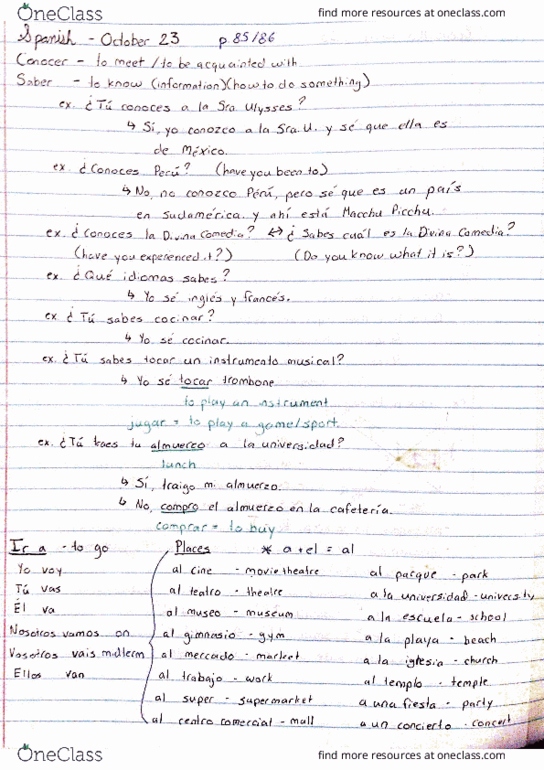 OneClass find more resources at oneclass.com
Spanish - October 23 p 85/86
Conocer - to meet / to be acquainted with
Saber - to know (information)(how to do something)
ex. ¿Tú conoces a la Sra. Ulysses?
↳ Sí, yo conozco a la Sra. U. y sé que ella es
de México.
ex. ¿Conoces Perú? (have you been to)
↳ No, no conozco Pérú, pero sé que es un país
en sudamérica. y ahí está Macchu Picchu.
ex. ¿Conoces la Divina Comedia? ↔ ¿Sabes cuál es la Divina Comedia?
(have you experienced it?) (Do you know what it is?)
ex. ¿Qué idiomas sabes?
↳ Yo sé inglés y francés.
ex ¿Tú sabes cocinar?
↳ Yo sé cocinar.
ex. ¿Tú sabes tocar un instrumento musical?
↳ Yo sé tocar trombone
to play an instrument
jugar = to play a game/sport.
ex. ¿Tú traes tu almuerzo a la universidad?
lunch
↳ Sí, traigo m. almuerzo.
↳ No, compro el almuerzo en la cafetería.
comprar = to buy
Ir a - to go Places * a + el = al
Yo voy al cine - movie theatre al parque - park
Tú vas al teatro - theatre a la universidad - university
Él va al museo - museum a la escuela - school
Nosotros vamos on al gimnasio - gym a la playa - beach
Vosotros vais midterm al mercado - market a la iglesia - church
Ellos van al trabajo - work al templo - temple
al super - supermarket a una fiesta - party
al centro comercial - mall a un concierto - concert
OneClass find more resources at oneclass.com